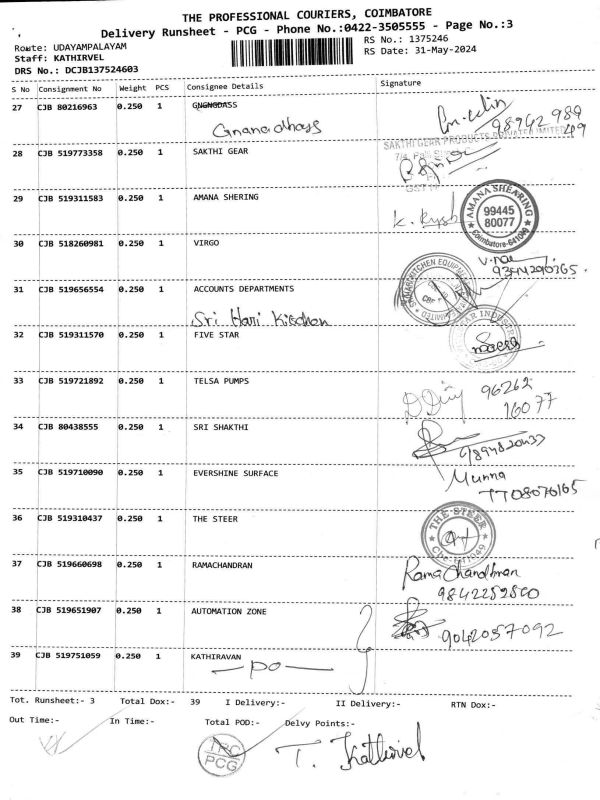 THE PROFESSIONAL COURIERS, COIMBATORE
Delivery Runsheet - PCG - Phone No.:0422-3505555 - Page No.:3
Route: UDAYAMPALAYAM
RS No.: 1375246
Staff: KATHIRVEL
RS Date: 31-May-2024
DRS No.: DCJB137524603
S No Consignment No Weight PCS Consignee Details Signature
27 CJB 80216963 0.250 1 GNGNGDASS
Gnanadhass
98942 989 49
28 CJB 519773358 0.250 1 SAKTHI GEAR
SAKTHI GEAR PRODUCTS PRIVATE LIMITED
29 CJB 519311583 0.250 1 AMANA SHERING
AMANA SHEARING
99445
80077
Coimbatore-641049
30 CJB 518260981 0.250 1 VIRGO
31 CJB 519656554 0.250 1 ACCOUNTS DEPARTMENTS
Sri Hari Kitchen
32 CJB 519311570 0.250 1 FIVE STAR
33 CJB 519721892 0.250 1 TELSA PUMPS
96262
16077
34 CJB 80438555 0.250 1 SRI SHAKTHI
9894820433
35 CJB 519710090 0.250 1 EVERSHINE SURFACE
Munna
7708076165
36 CJB 519310437 0.250 1 THE STEER
THE STEER
Cbe-641049
37 CJB 519660698 0.250 1 RAMACHANDRAN
Rama Chandhran
9842252560
38 CJB 519651907 0.250 1 AUTOMATION ZONE
9042057092
39 CJB 519751059 0.250 1 KATHIRAVAN
- PO -
Tot. Runsheet:- 3 Total Dox:- 39 I Delivery:- II Delivery:- RTN Dox:-
Out Time:- In Time:- Total POD:- Delvy Points:-
PCG
T. Kathirvel